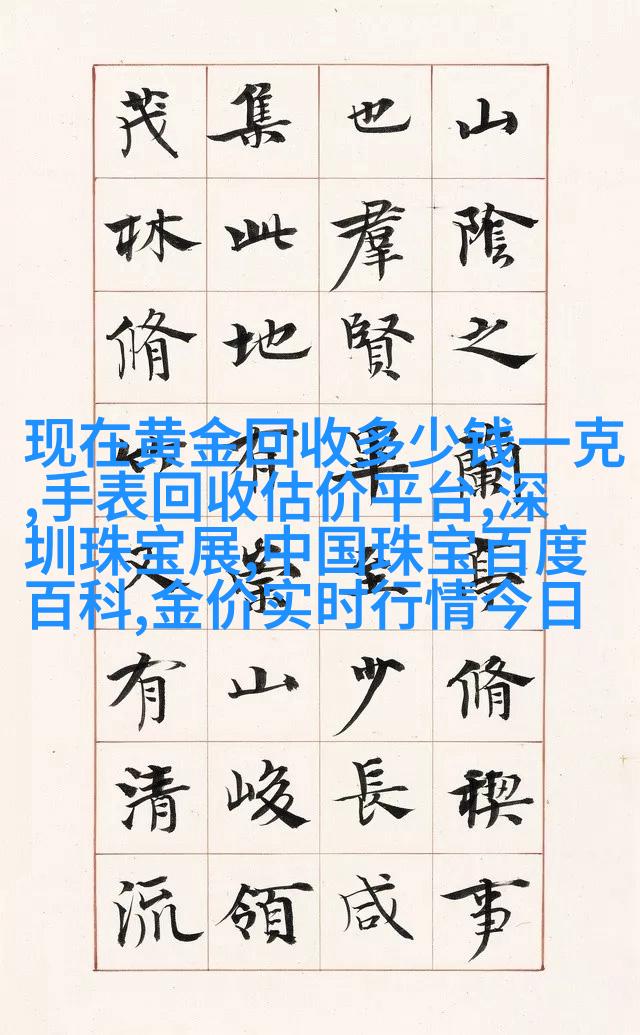 山陰之蘭亭脩稧事
也羣賢畢至少長咸
集此地有崇山峻領
茂林脩竹又有清流
现在黄金回收多少钱一克
,手表回收估价平台,深
圳珠宝展,中国珠宝百度
百科,金价实时行情今日